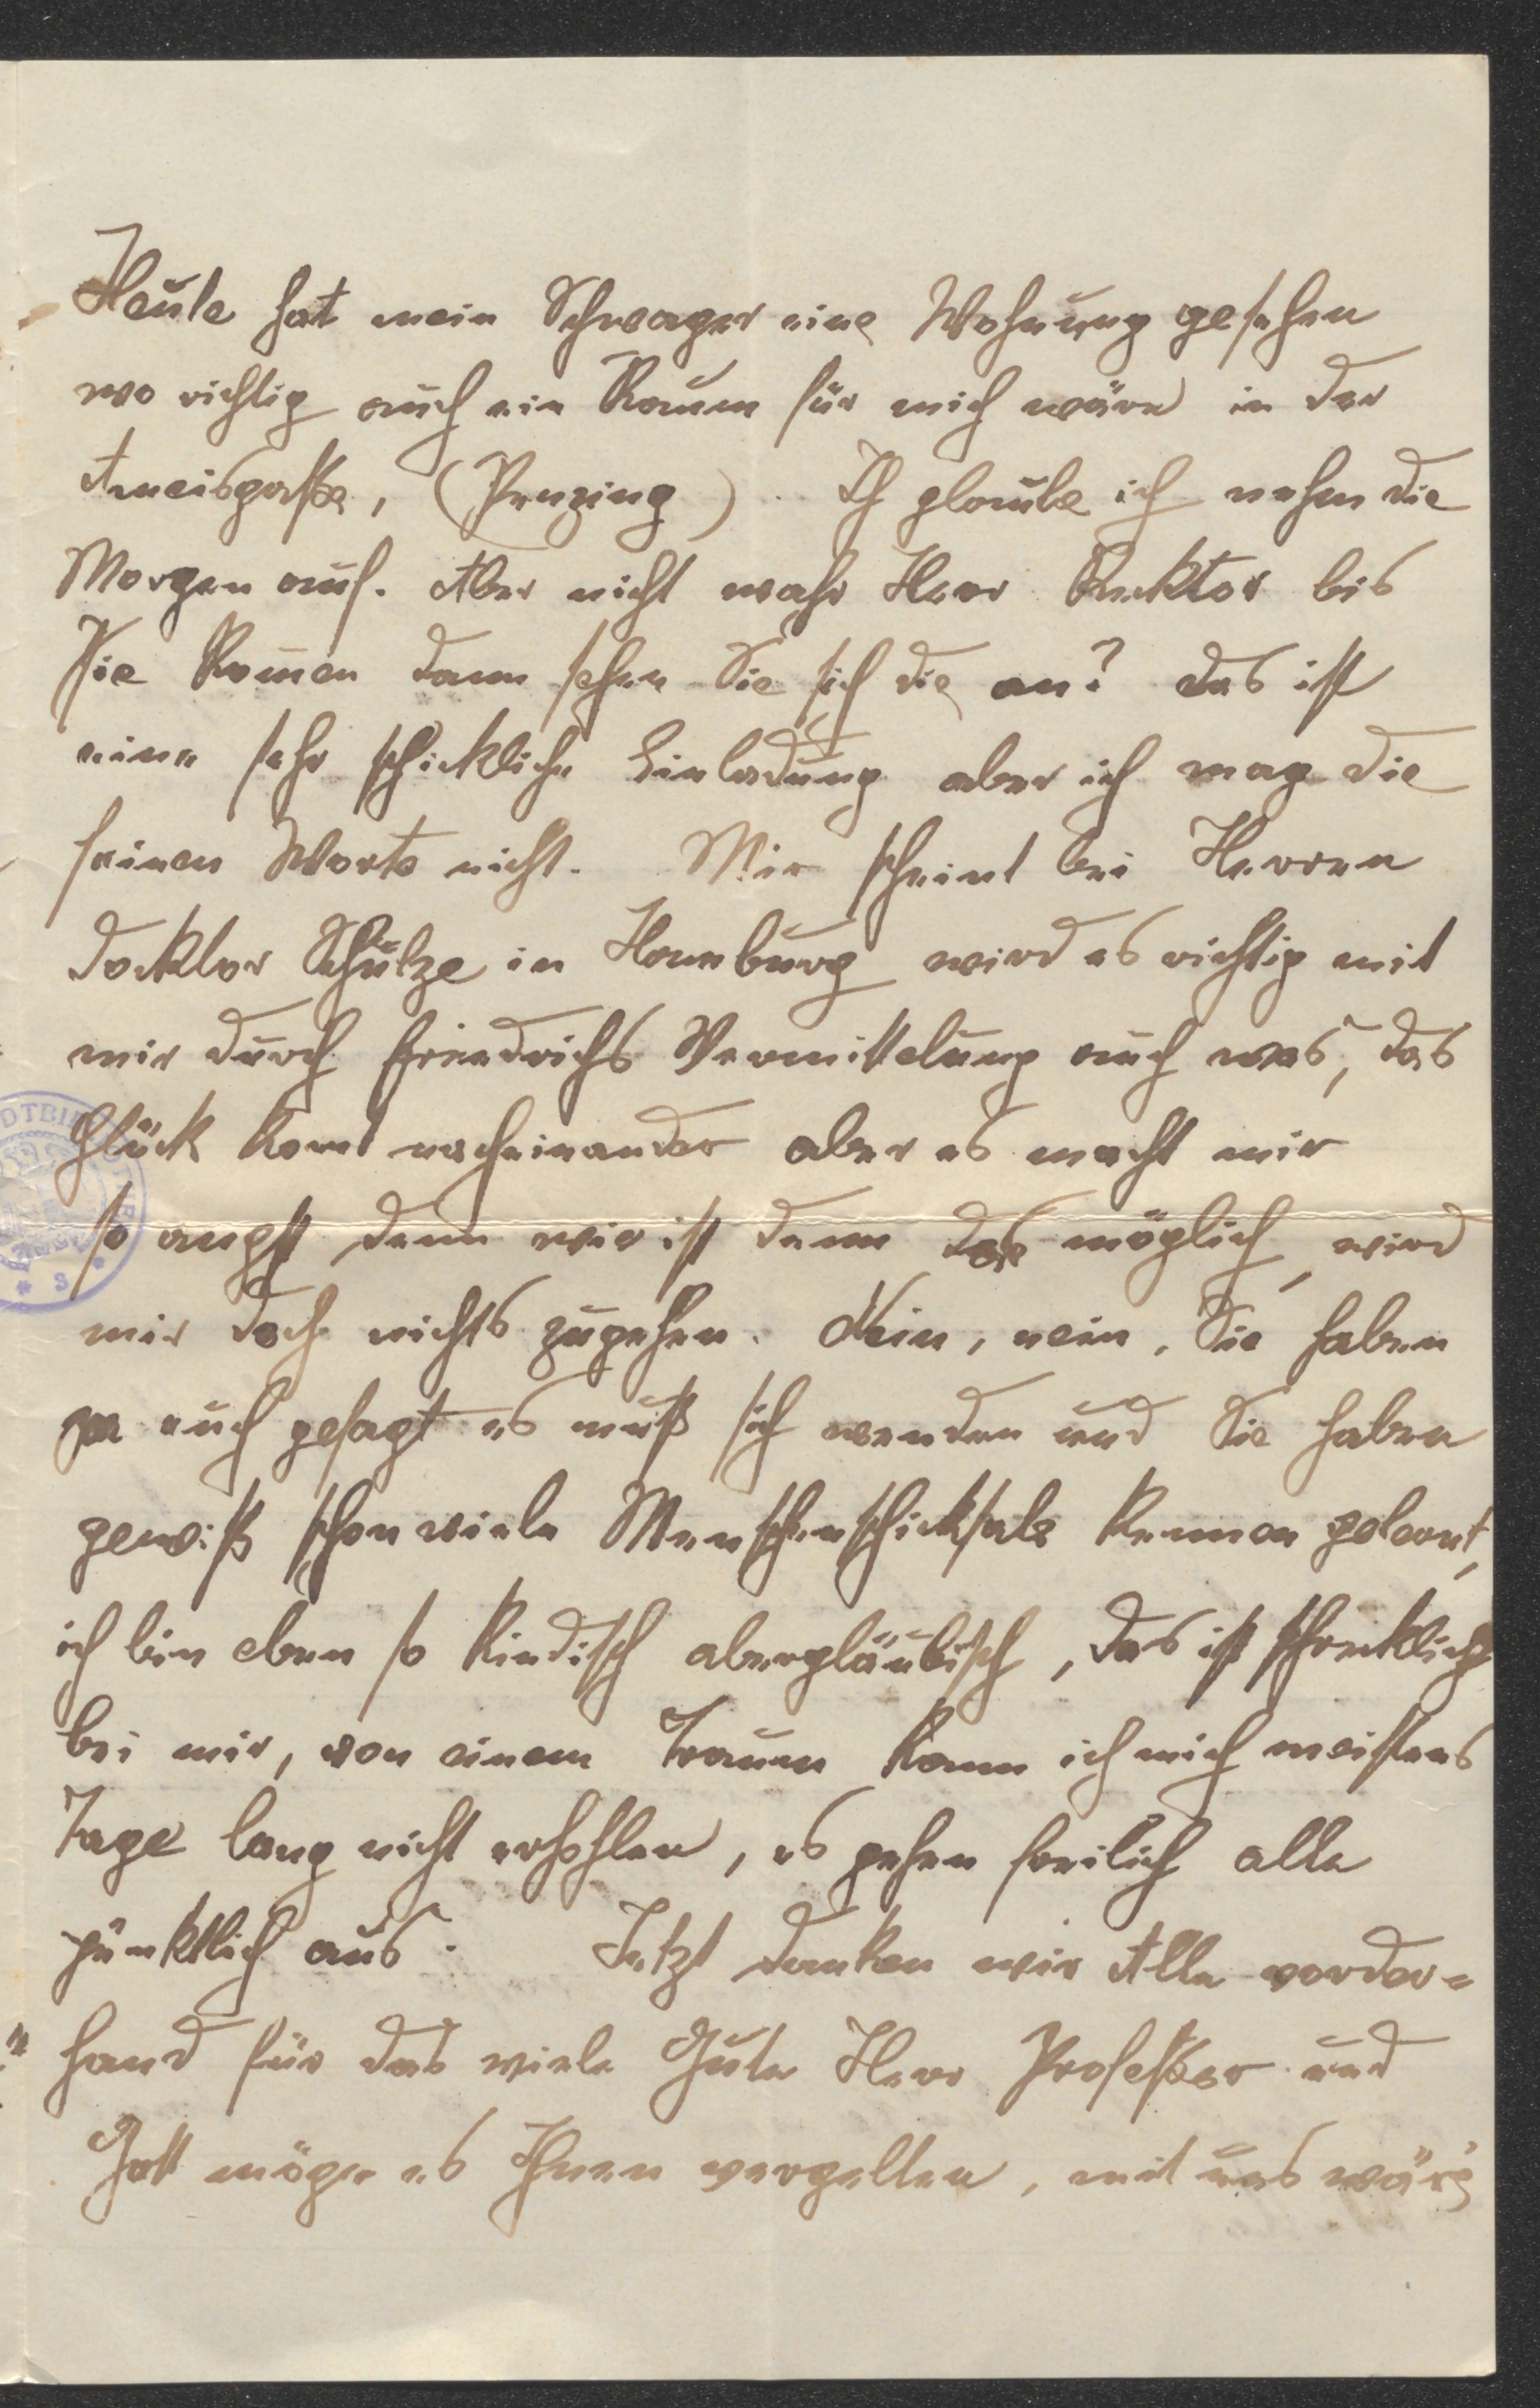 Heute hat mein Schwager eine Wohnung gesehen
wo richtig auch ein Raum für mich wäre in der
Ameisgaße, (Penzing). Ich glaube ich nehm die
Morgen auf. Aber nicht wahr Herr Docktor bis
Sie komen dann sehen Sie sich die an? das ist
eine sehr schickliche Einladung aber ich mag die
feinen Worte nicht. Mir scheint bei Herren
Docktor Schulze in Hamburg wird es richtig mit
mir durch Friedrichs Vermittelung auch was, das
Glück komt nacheinander aber es macht mir
so angst denn wie ist denn das möglich, wird
mir doch nichts zugehen. Nein, nein, Sie haben
ja auch gesagt es muß sich wenden und Sie haben
gewiß schon viele Menschenschicksale kennen gelernt,
ich bin eben so kindisch abergläubisch, das ist schrecklich
bei mir, von einem Traum kann ich mich meistens
Tage lang nicht erhohlen, es gehen freilich alle
pünktlich aus. Jetzt danken wir Alle vorder-
hand für das viele Gute Herr Profeßor und
Gott möge es Ihnen vergelten, mit uns wär's
DTBI
* S *